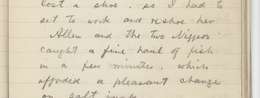 lost a shoe. so I had to
set to work and reshoe her
Allen and the two Niggers
caught a fine haul of fish
in a few minutes, which
afforded a pleasant change
on salt junk.